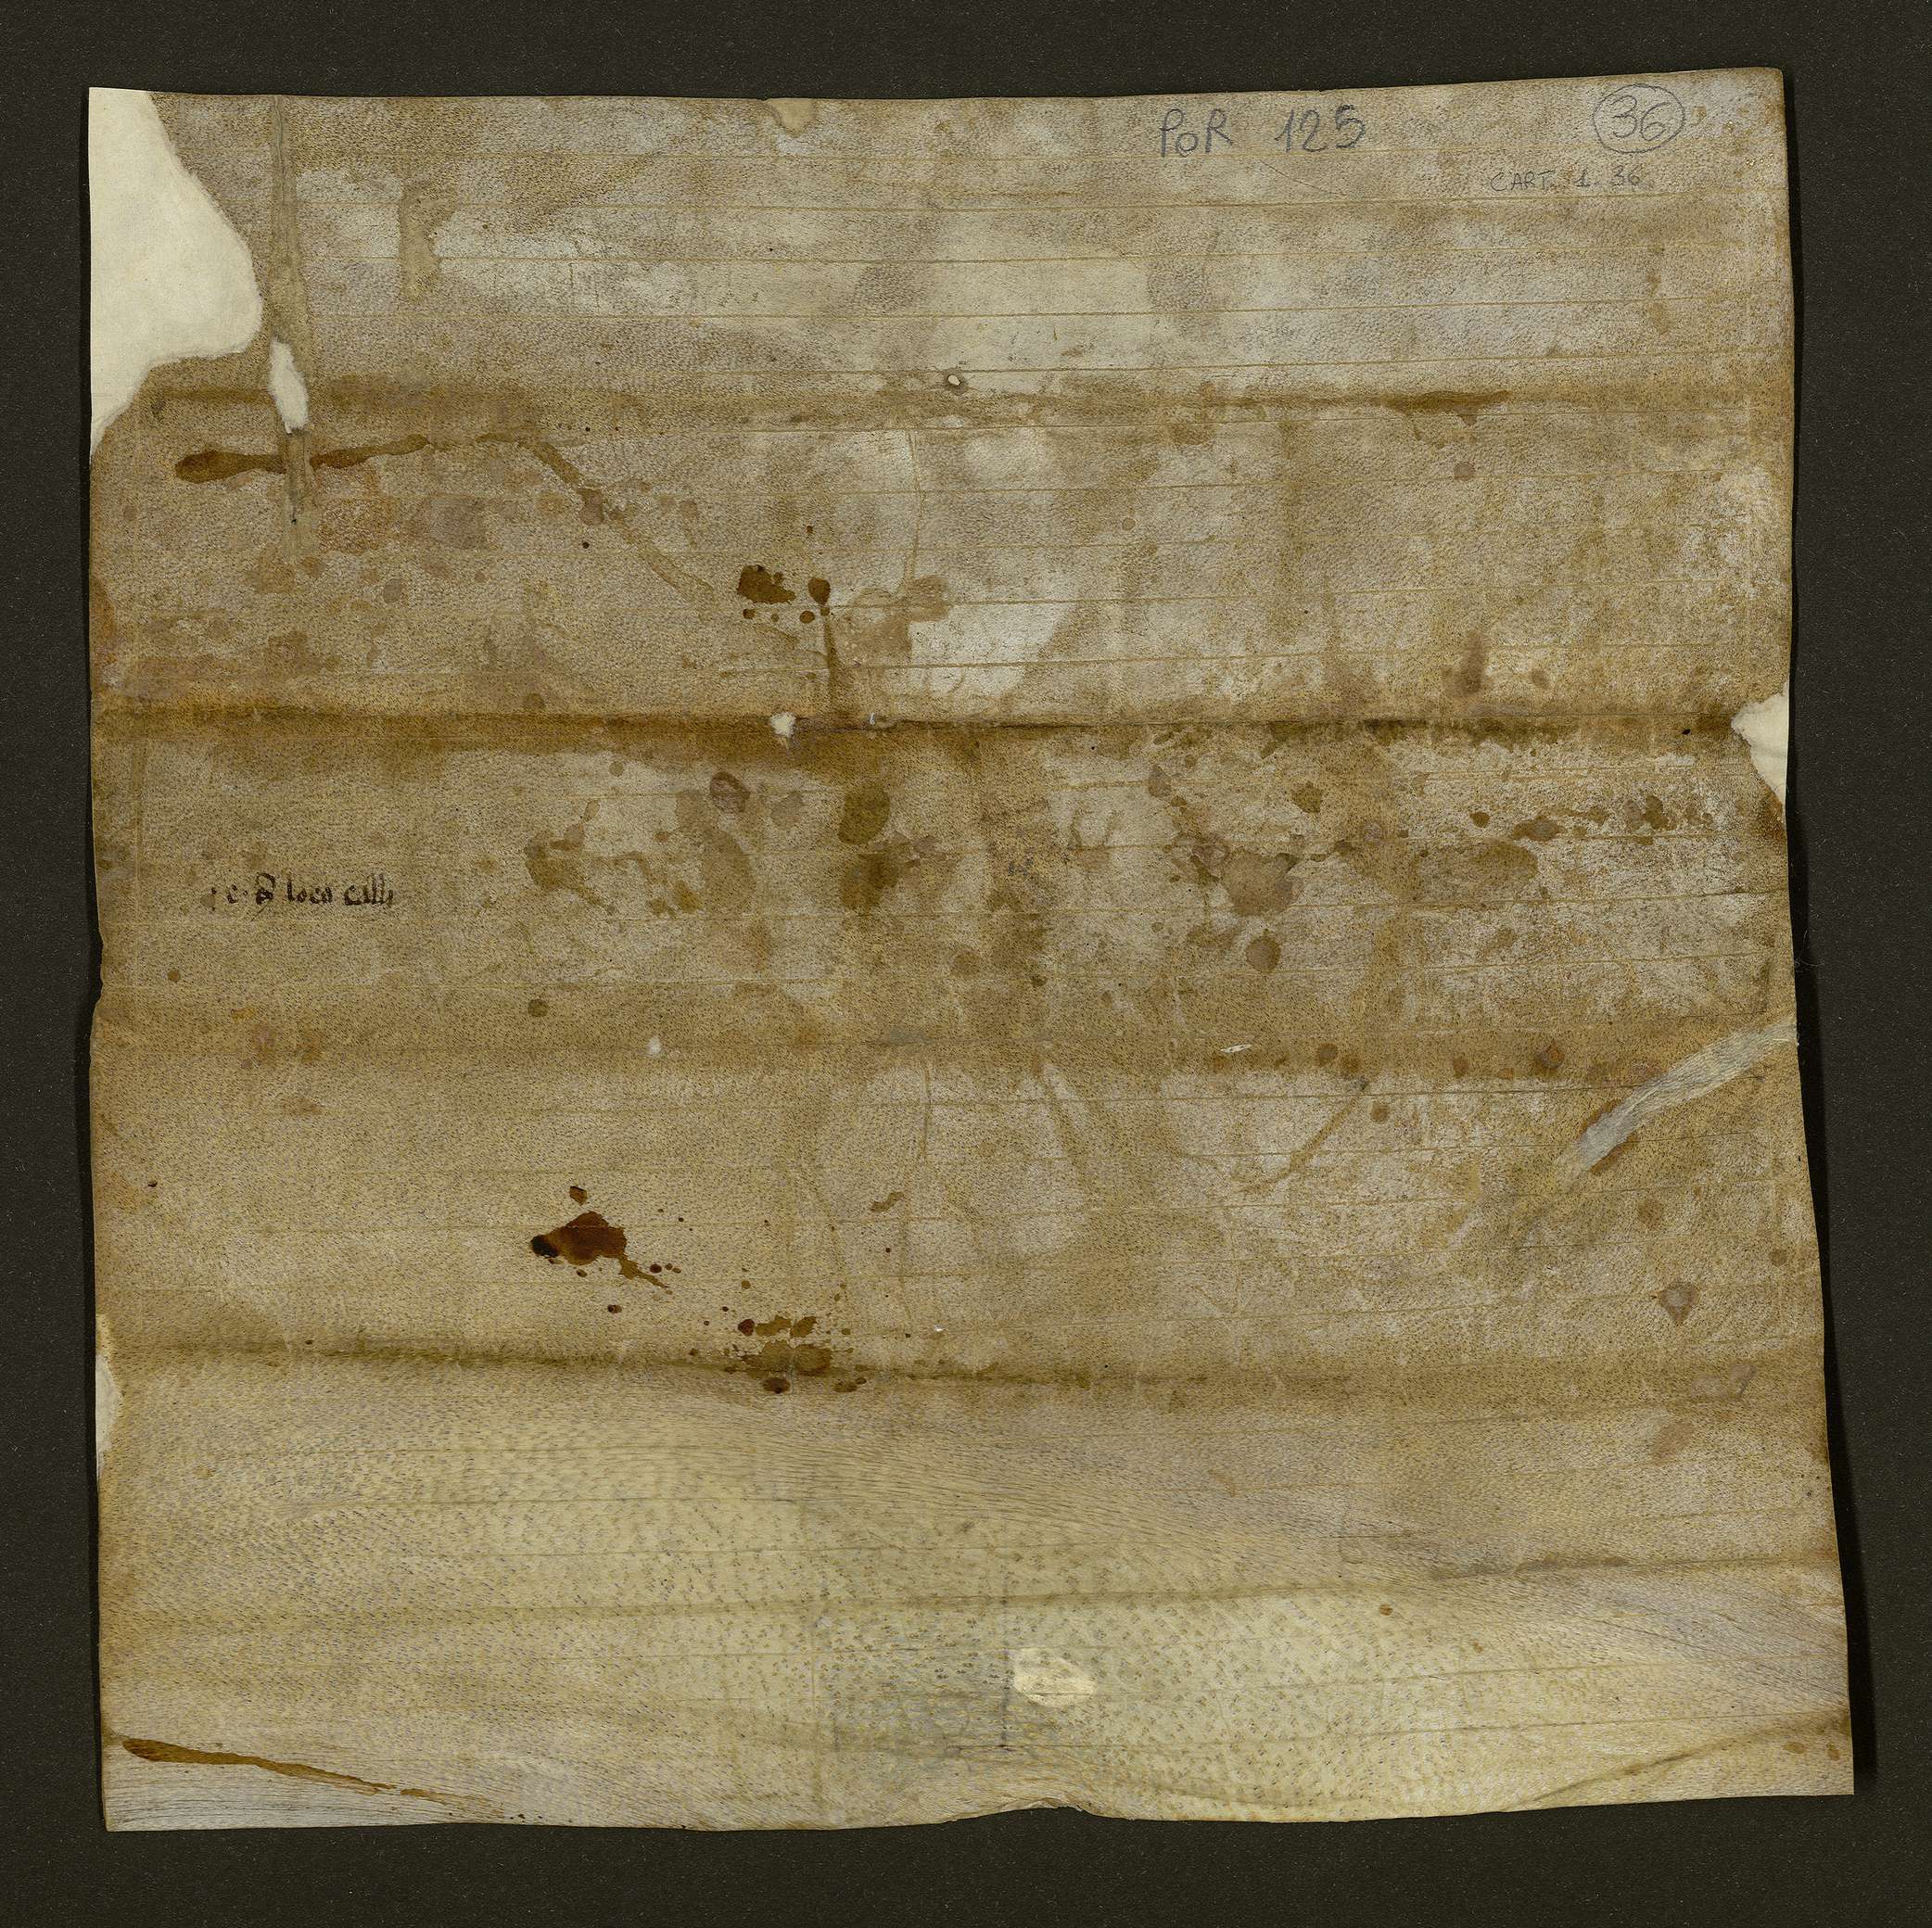 PoR 125
36
CART. 1. 36
loco calli